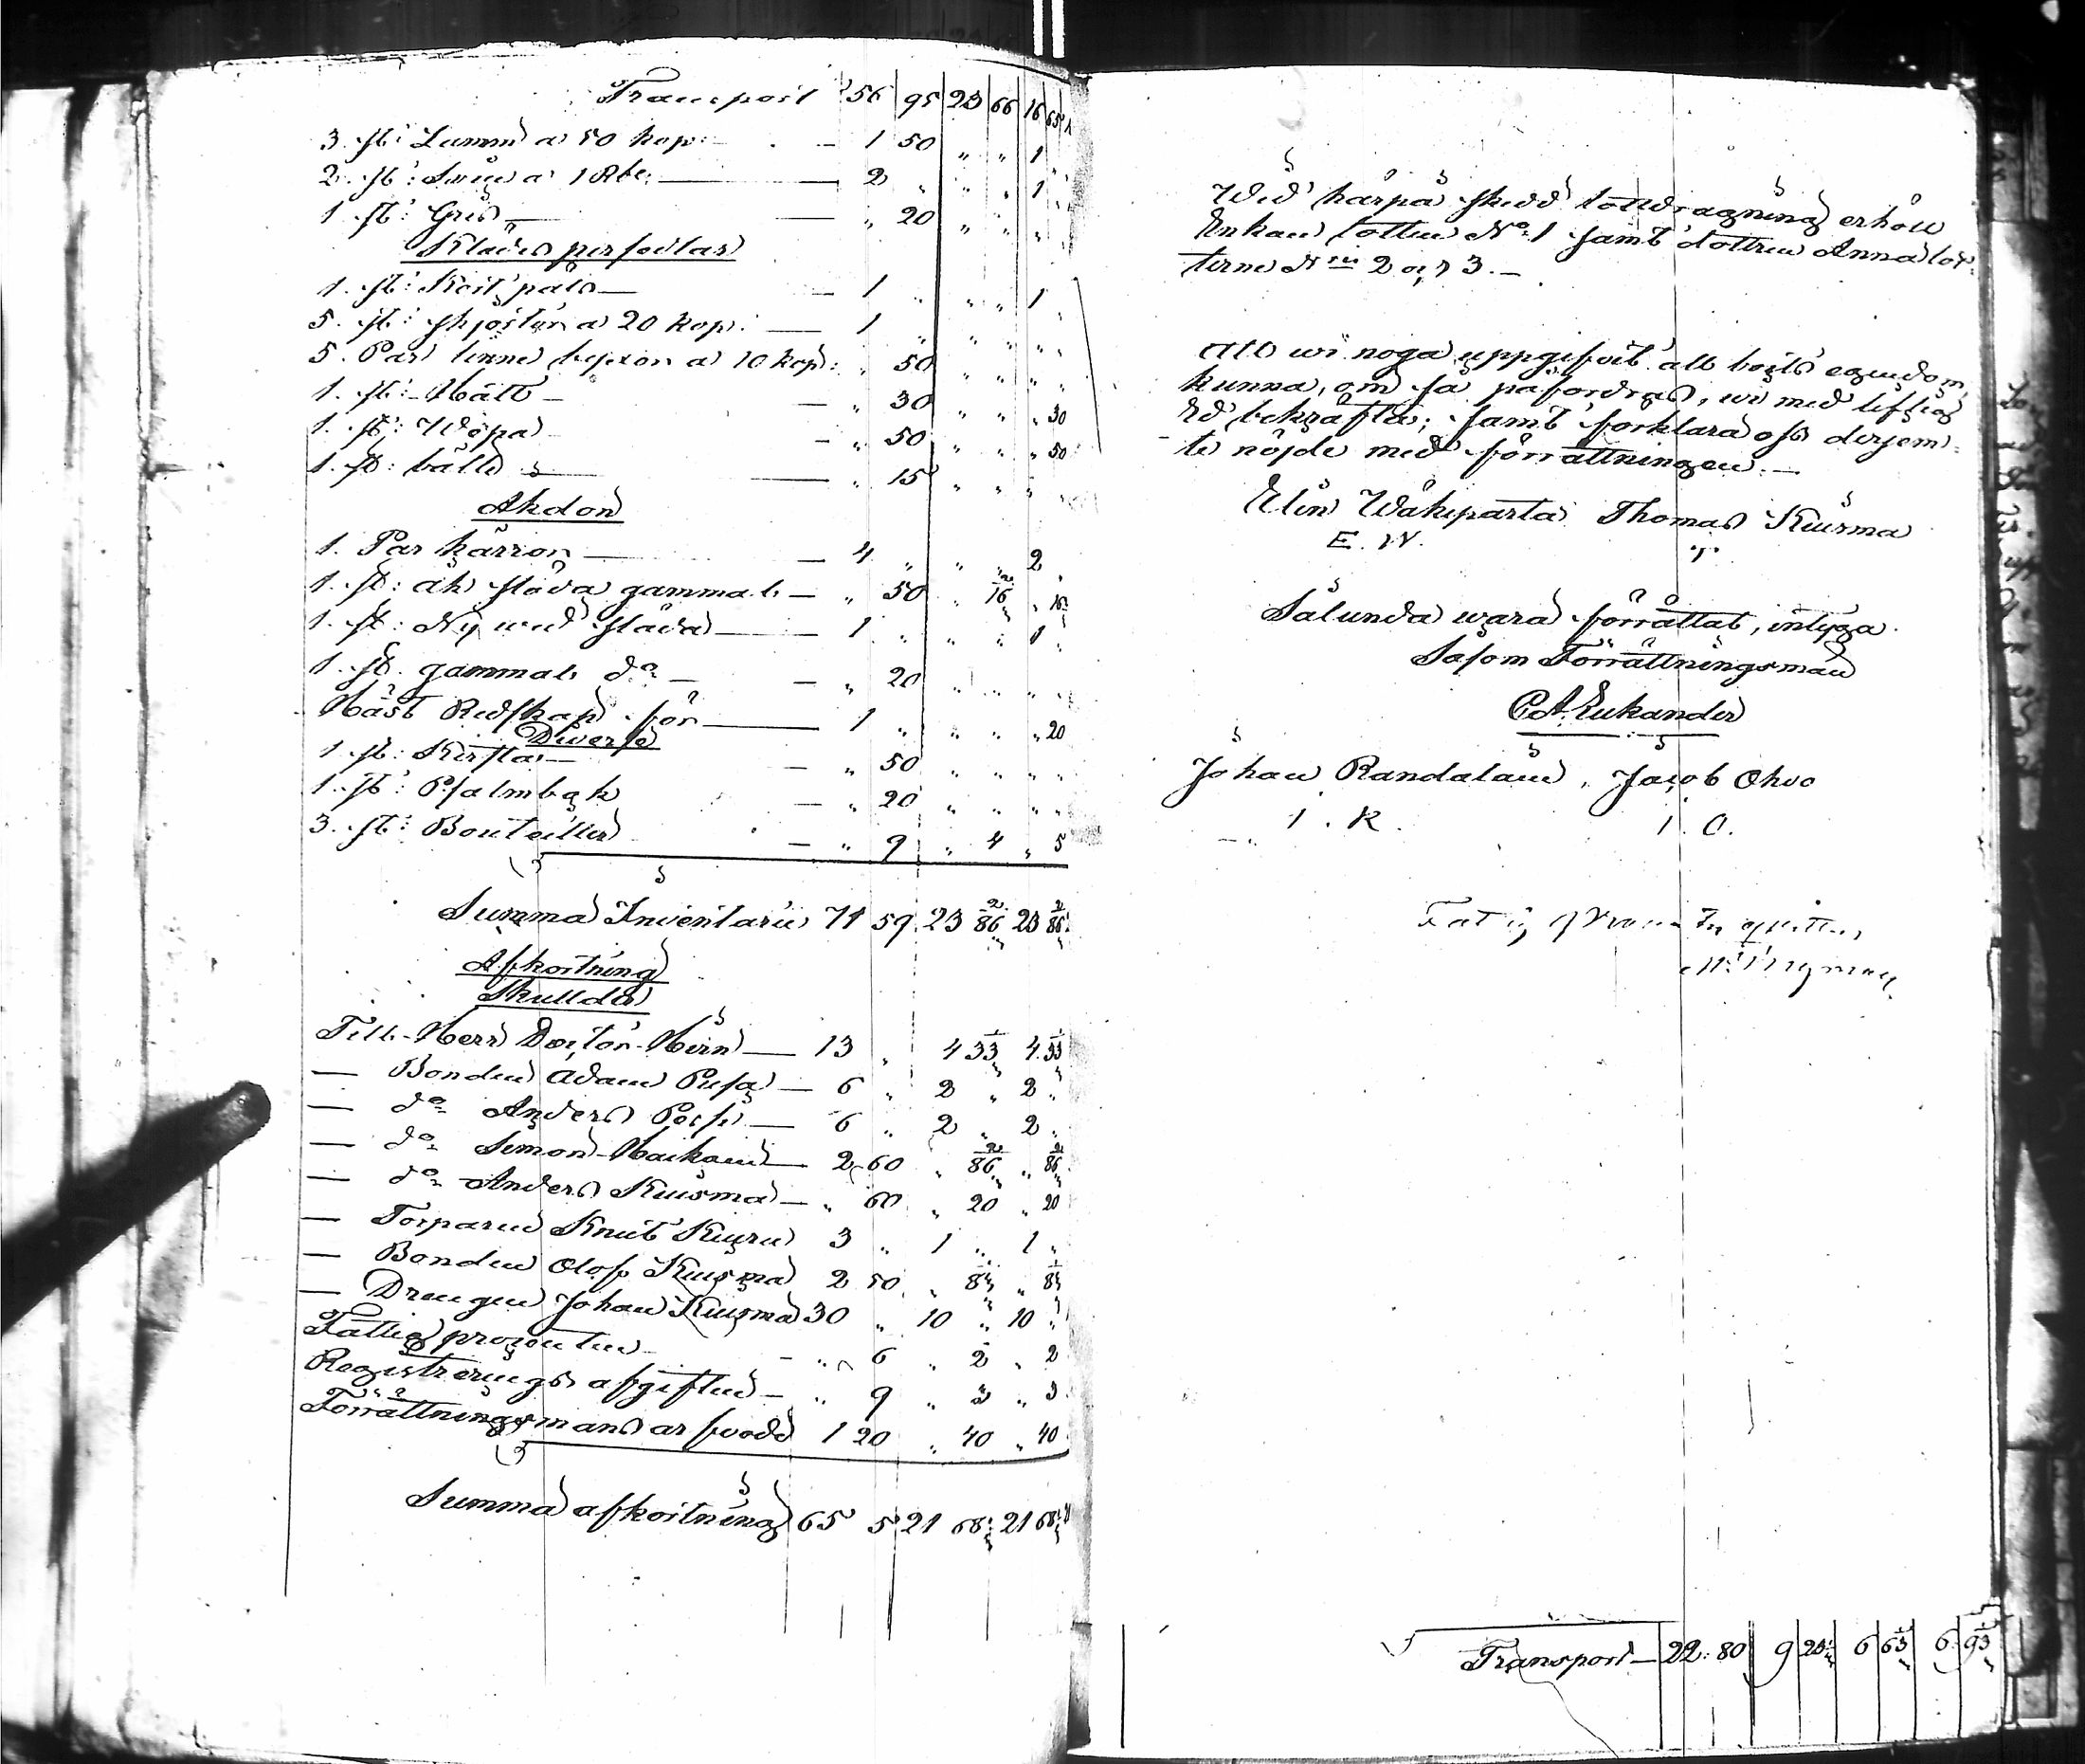 Transport 56 95 23 66 16 65
3. st: Lamm a 50 kop: — 1 50 " " 1 "
2. st: Swin a 1 Rbl: — 2 " " " 1 "
1. st: Gris — " 20 " " " "
Kläds persedlar
1. st: päls — 1 " " " 1 "
5. st: skjortur a 20 kop: — 1 " " " " "
5. Par linne byxor a 10 kop: " 50 " " " "
1. st: Hatt — " 30 " " " 30
1. st: — " 50 " " " 50
1. st: bälte — " 15 " " " "
Akdon
1. Par kärror — 4 " " " 2 "
1. st: åk släda gammal — " 50 " 16 " 16
1. st: Ny wed släda — 1 " " " 1 "
1. st. gammal do — " 20 " " " "
Häst Redskap för — 1 " " " " 20
Diverse
1. st: Kista — " 50 " " " "
1. st: Psalmbok — " 20 " " " "
3. st: Bouteiller — " 9 " 4 " 5
Summa Inventarii 71 59 23 86 23 86
Afkortning
Skulder
Till Herr Doctor — 13 " 4 33 4 33
— Bonden Adam — 6 " 2 " 2 "
— do Anders — 6 " 2 " 2 "
— do Simon — 2 60 " 86 " 86
— do Anders Kuisma — " 60 " 20 " 20
— Torparen Knut 3 " 1 " 1 "
— Bonden Olof Kuisma 2 50 " 83 " 83
— Drengen Johan Kuisma 30 " 10 " 10 "
Fattig procenten — " 6 " 2 " 2
Registrerings afgiften — " 9 " 3 " 3
Förrättningsmans arfvode 1 20 " 40 " 40
Summa afkortning 65 5 21 68 21 68
Wid härpå skedd lottdragning erhöll
Enkan lotten No 1 samt dottren Anna lot-
terne 2 och 3. —
Att wi noga uppgifvit all boets egendom,
kunna, om så påfordras, wi med liflig
Ed bekräfta; samt förklara oss derjem-
te nöjde med förrättningen. —
Elin Thomas Kuisma
E. W.
Sålunda wara förrättat, intyga.
Såsom Förrättningsman
Johan Jacob
I. R. I. O.
Transport — 22: 80 9 6 63 6 93